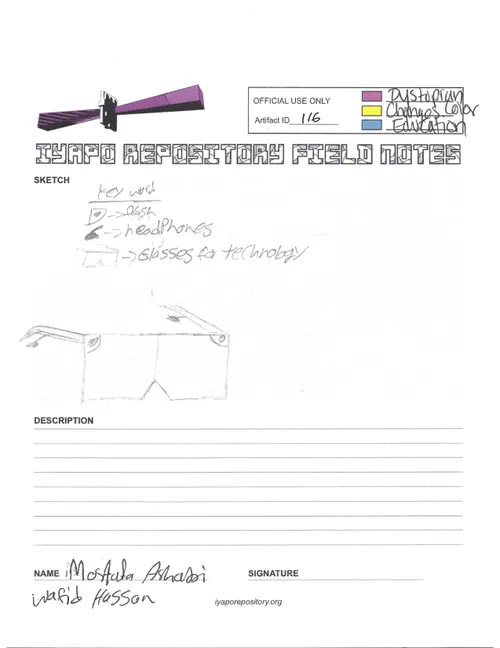 OFFICIAL USE ONLY
Artifact ID 116
Dystopian
Changes Color
Education
IYAPO REPOSITORY FIELD NOTES
SKETCH
Key word
-> flash
-> headphones
-> Glasses for technology
DESCRIPTION
NAME Mostafa
Hassan
SIGNATURE
iyaporepository.org